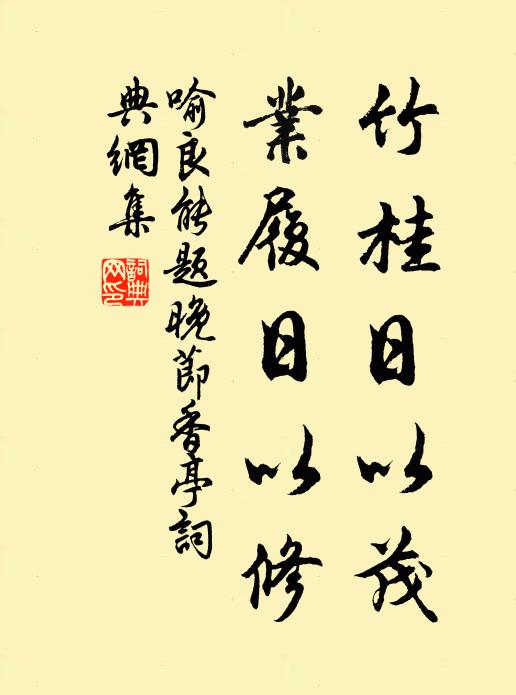 竹桂日以茂
業履日以修
喻良能題晚節香亭詞
典網集
詞典
网印